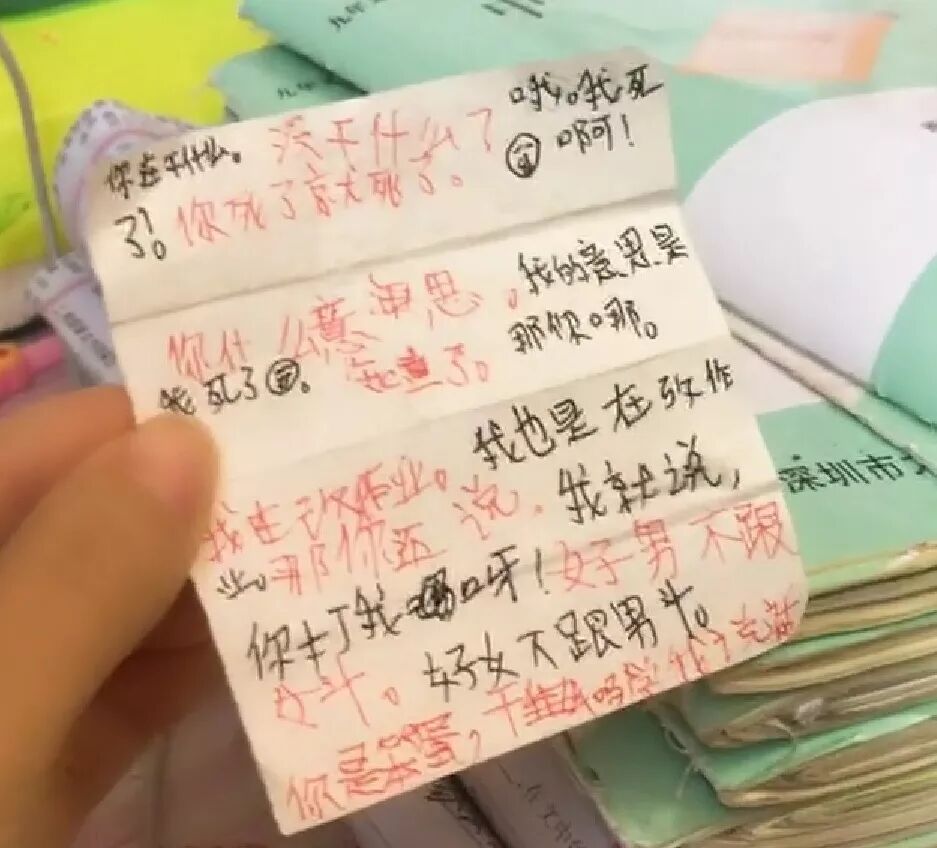 你在干什么。没干什么了
哦。我死
了!。你死了就死了。
啊!
你什么意思。
我的意思是
我死了。
那你哪。
我在改作业。我也是在改作
业。那你还说.我就说,
你打我呀!好子男不跟
女斗。好女不跟男斗。
你是笨蛋,干
吗学我
深圳市